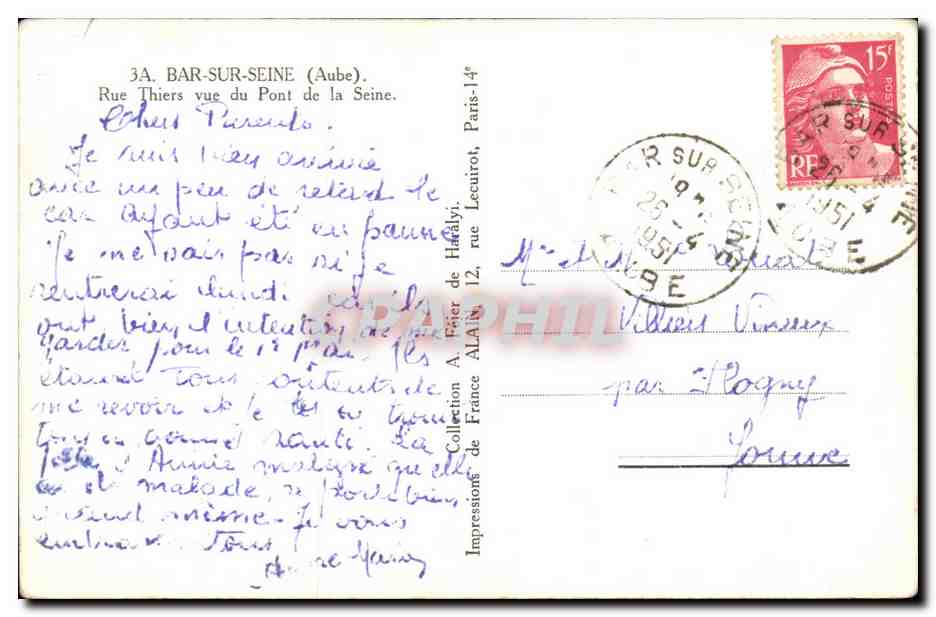 3A. BAR-SUR-SEINE (Aube).
Rue Thiers vue du Pont de la Seine.
Chers Parents.
Je suis bien arrivée
avec un peu de retard le
car ayant été en panne
je ne sais pas si je
rentrerai lundi car ils
ont bien l'intention de me
garder pour le 1er Mai. Ils
étaient tous contents de
me revoir et je les ai trouvé
tous en bonne santé. La
d'Annie malgré qu'elle
malade, se porte bien
quand même. Je vous
embrasse tous
Collection A. Féier de Haralyi.
Impressions de France ALAIN, 12, rue Lecuirot, Paris-14e
15F
POSTES
RF
BAR SUR SEINE
19
26-4
1951
AUBE
BAR SUR SEINE
19
26-4
1951
AUBE
CPAPHIL
Villiers Vineux
par Flogny
Yonne